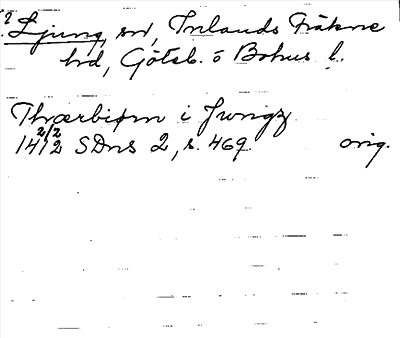 Ljung, sn, Inlands Fräkne
hd, Göteb. o Bohus l.
Thorbiørn i Jwngz
2/2
1412 SDns 2, s. 469. orig.